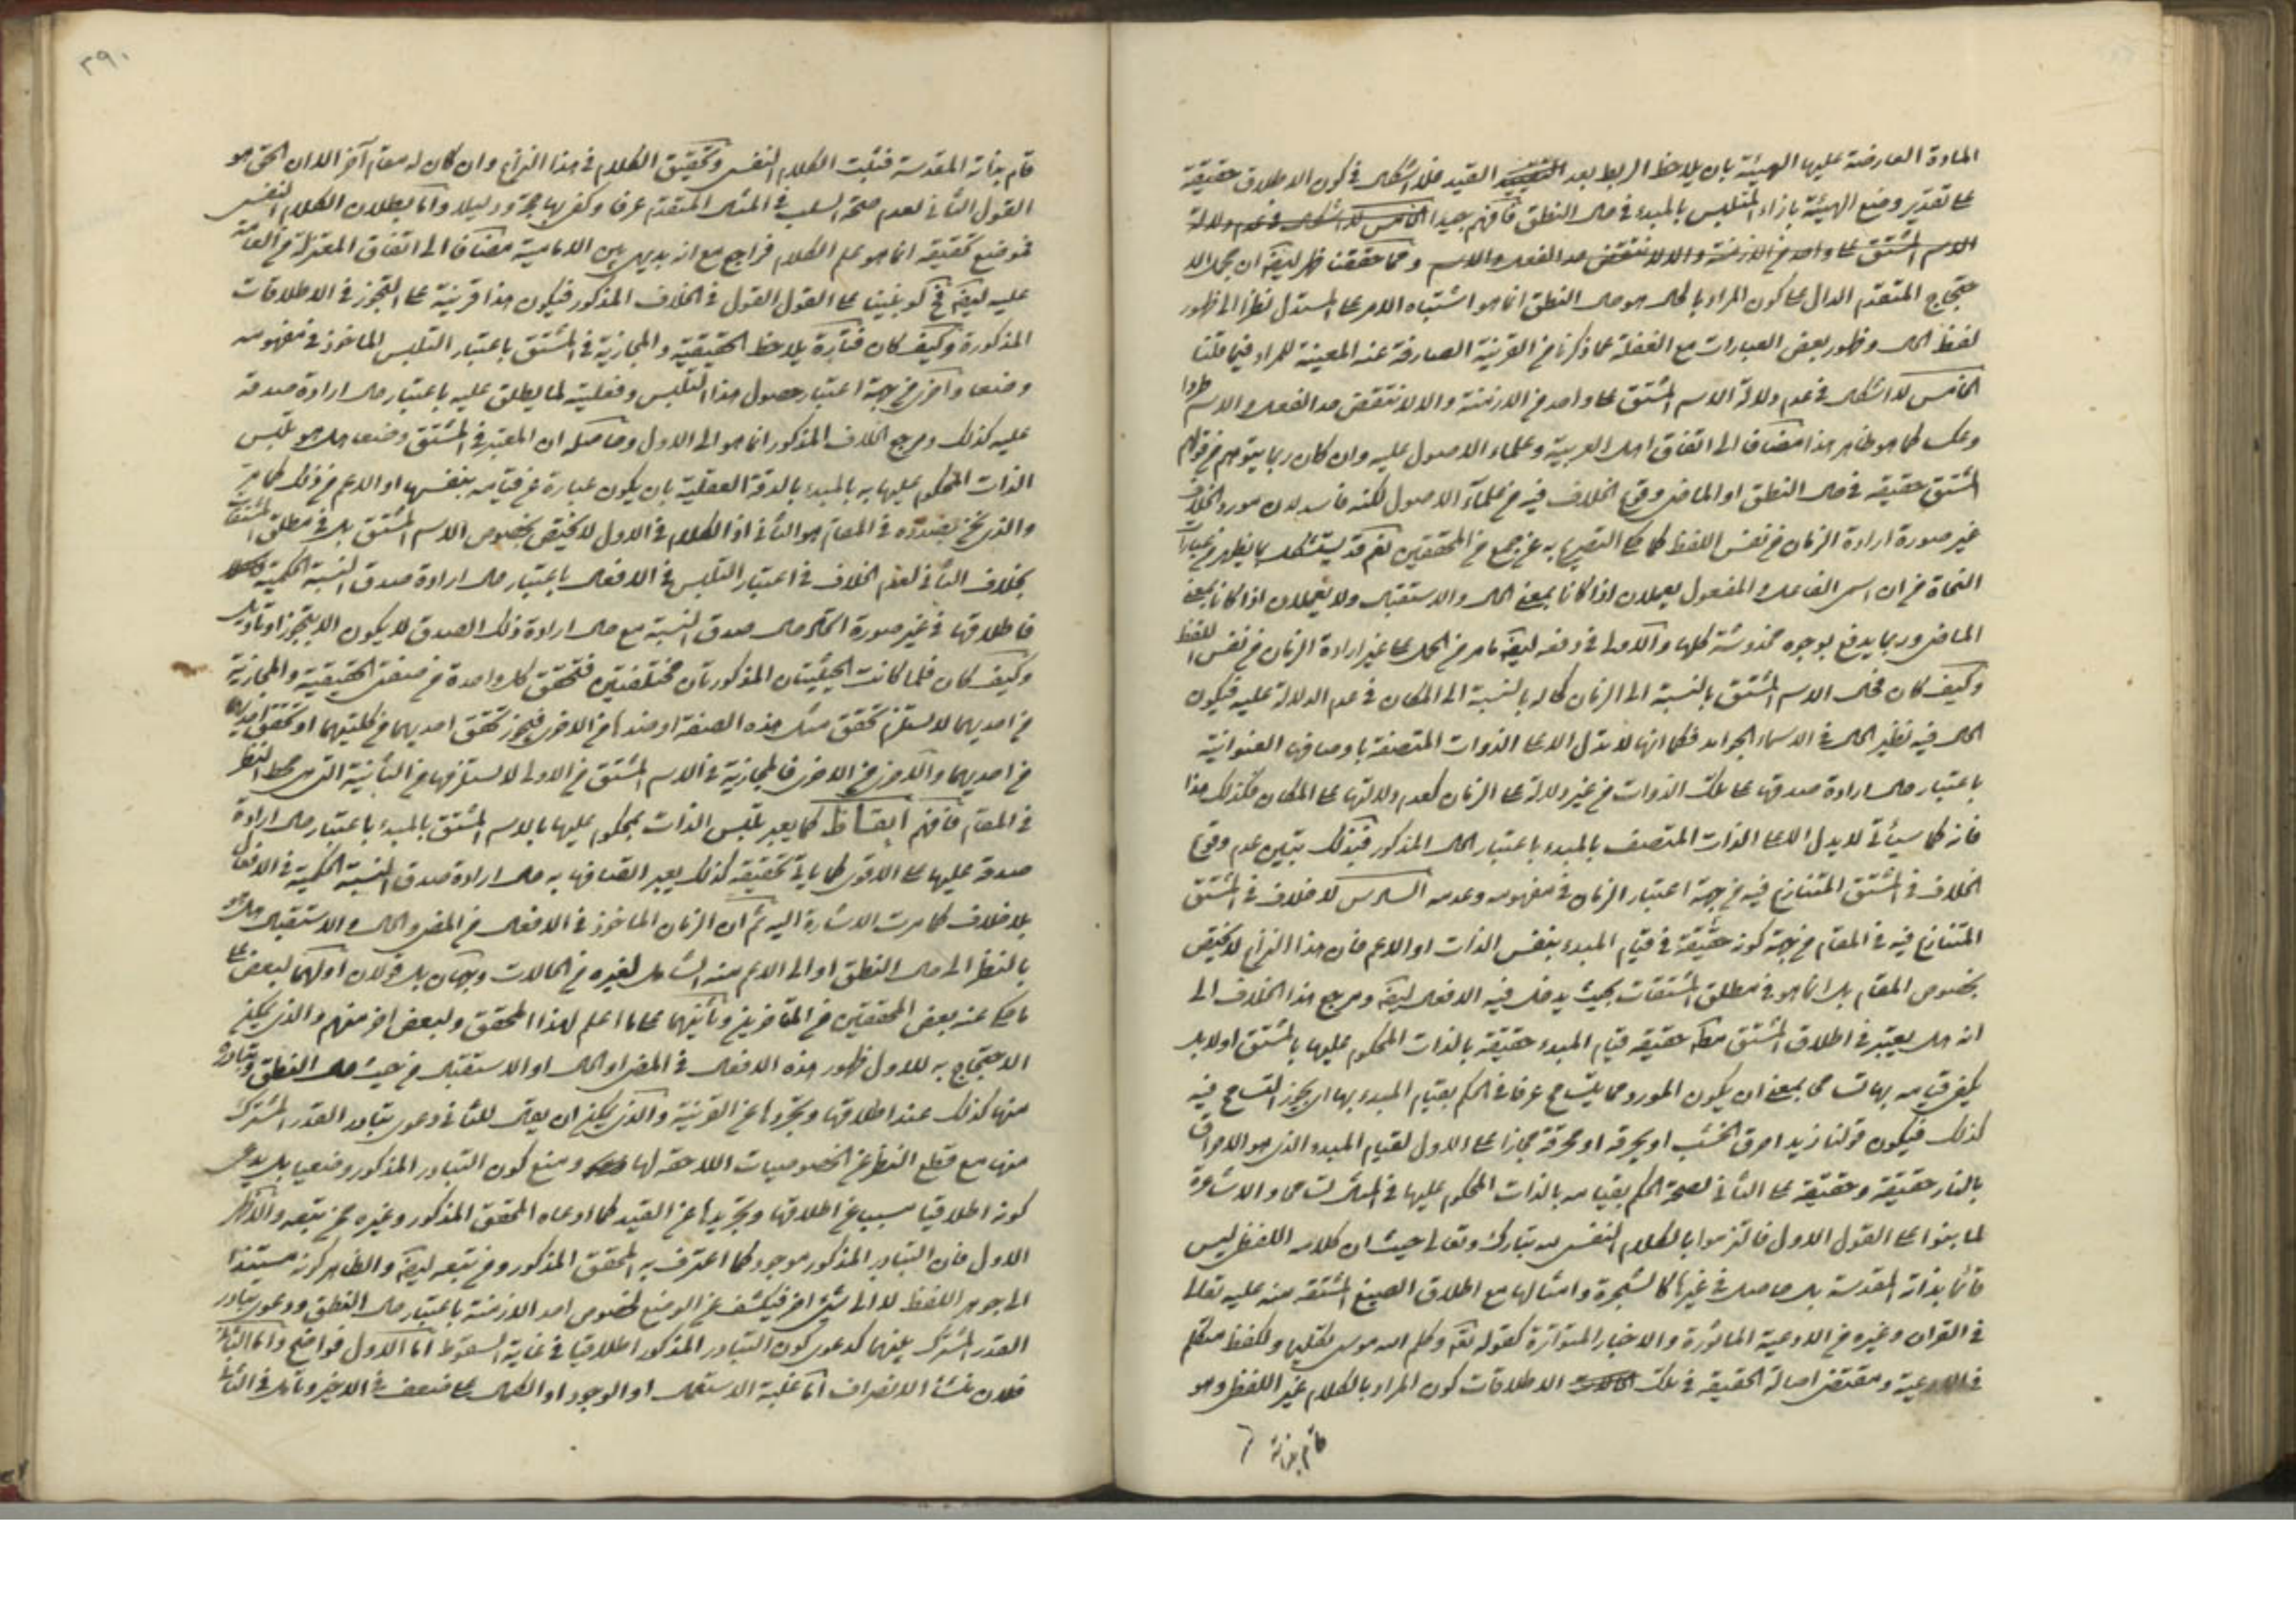 المادة العارضة عليها الهيئة بان يلاحظ الربط بعد القيد فلا اشكال فى كون الاطلاق حقيقة
على تقدير وضع الهيئة بازاء المتلبس بالمبدء فى حال النطق فافهم جيدا الخامس لا اشكال فى عدم دلالة
الاسم المشتق على واحد من الازمنة والا لانتقض حد الفعل والاسم ومما حققنا ظهر ايضا ان
حتجاج المتقدم الدال على كون المراد بالحال هو حال النطق انما هو اشتباه الامر على المستدل نظرا الى ظهور
لفظ الحال وظهور بعض العبارات مع الغفلة عما ذكرنا من القرينة الصارفة عنه المعينة للمراد فيما قلنا
الخامس لا اشكال فى عدم دلالة الاسم المشتق على واحد من الازمنة والا لانتقض حد الفعل والاسم طردا
وعكسا كما هو ظاهر هذا مضافا الى اتفاق اهل العربية وعلماء الاصول عليه وان كان ربما يتوهم من قولهم
المشتق حقيقة فى حال النطق او الماضى وقوع الخلاف فيه من علماء الاصول لكنه فاسد لان مورد الخلاف
غير صورة ارادة الزمان من نفس اللفظ كما حكى التصريح به عن جمع من المحققين نعم قد يستشكل بما يظهر من عبارات
النحاة من ان اسمى الفاعل والمفعول يعملان اذا كانا بمعنى الحال والاستقبال ولا يعملان اذا كانا بمعنى
الماضى وربما يدفع بوجوه مخدوشة كلها والاولى فى دفعه ايضا ما مر من الحمل على غير ارادة الزمان من نفس اللفظ
وكيف كان فحال الاسم المشتق بالنسبة الى الزمان كحاله بالنسبة الى المكان فى عدم الدلالة عليه فيكون
الحال فيه نظير الحال فى الاسماء الجوامد فكما انها لا تدل الا على الذوات المتصفة باوصافها العنوانية
باعتبار حال ارادة صدقها على تلك الذوات من غير دلالة على الزمان كعدم دلالتها على المكان فكذلك هذا
فانه كما سيأتى لا يدل الا على الذات المتصف بالمبدء باعتبار الحال المذكور فبذلك يتبين عدم وقوع
الخلاف فى المشتق المتنازع فيه من جهة اعتبار الزمان فى مفهومه وعدمه السادس لا خلاف فى المشتق
المتنازع فيه فى المقام من جهة كونه حقيقة فى قيام المبدء بنفس الذات او الاعم فان هذا النزاع لا يختص
بخصوص المقام بل انما هو فى مطلق المشتقات بحيث يدخل فيه الافعال ايضا ومرجع هذا الخلاف الى
انه هل يعتبر فى اطلاق المشتق حقيقة قيام المبدء حقيقة بالذات المحكوم عليها بالمشتق او لا بل
يكفى قيامه بها تسامحا بمعنى ان يكون المورد مما يتسامح عرفا فى الحكم بقيام المبدء بها اى يجوز التسامح فيه
كذلك فيكون قولنا زيد احرق الخشب او يحرقه او محرقه مجازا على الاول لقيام المبدء الذى هو الاحراق
بالنار حقيقة وحقيقة على الثانى لصحة الحكم بقيامه بالذات المحكوم عليها فى المثال تسامحا والاشاعرة
لما بنوا على القول الاول فالتزموا بالكلام النفسى لله تبارك وتعالى حيث ان كلامه اللفظى ليس
قائما بذاته المقدسة بل حاصل فى غيرها كالشجرة وامثالها مع اطلاق الصيغ المشتقة منه عليه تعالى
فى القران وغيره من الادعية الماثورة والاخبار المتواترة كقوله تعالى وكلم الله موسى تكليما وكلفظ متكلم
فى الادعية ومقتضى اصالة الحقيقة فى تلك الاطلاقات كون المراد بالكلام غير اللفظى وهو
قائم بذاته
٢٩٠
قائم بذاته المقدسة فثبت الكلام النفسى وتحقيق الكلام فى هذا النزاع وان كان له مقام آخر الا ان الحق هو
القول الثانى لعدم صحة السلب فى المثال المتقدم عرفا وكفى بها حجة ودليلا واما بطلان الكلام النفسى
فموضع تحقيقه انما هو علم الكلام فراجع مع انه بديهى بين الامامية مضافا الى اتفاق المعتزلة من العامة
عليه ايضا فلو بنينا على القول الاول فى الخلاف المذكور فيكون هذا قرينة على التجوز فى الاطلاقات
المذكورة وكيف كان فتارة يلاحظ الحقيقية والمجازية فى المشتق باعتبار التلبس الماخوذ فى مفهومه
وضعا واخرى من جهة اعتبار حصول هذا التلبس وفعليته لما يطلق عليه باعتبار حال ارادة صدقه
عليه كذلك ومرجع الخلاف المذكور انما هو الى الاول وحاصله ان المعتبر فى المشتق وضعا هل هو تلبس
الذات المحكوم عليها به بالمبدء بالدقة العقلية بان يكون عبارة عن قيامه بنفسها او الاعم من ذلك كما مر
والذى نحن بصدده فى المقام هو الثانى اذ الكلام فى الاول لا يختص بخصوص الاسم المشتق بل فى مطلق المشتقات
بخلاف الثانى لعدم الخلاف فى اعتبار التلبس فى الافعال باعتبار حال ارادة صدق النسبة الحكمية
فاطلاقها فى غير صورة اتحاد حال صدق النسبة مع حال ارادة ذلك الصدق لا يكون الا بتجوز او تاويل
وكيف كان فلما كانت الحيثيتان المذكورتان مختلفتين فتحقق كل واحدة من صفتى الحقيقية والمجازية
من احديهما لا يستلزم تحقق مثل هذه الصفة او ضدها من الاخرى فيجوز تحقق احديهما من كلتيهما او تحقق احديها
من احديهما والاخرى من الاخرى فالمجازية فى الاسم المشتق من الاولى لا يستلزمها من الثانية التى هى محط النظر
فى المقام فافهم ايقاظ كما يعبر تلبس الذات بمحكوم عليها بالاسم المشتق بالمبدء باعتبار حال ارادة
صدقه عليها على الاقوى كما ياتى تحقيقه كذلك يعبر اتصافها به حال ارادة صدق النسبة الحكمية فى الافعال
بلا خلاف كما مرت الاشارة اليه ثم ان الزمان الماخوذ فى الافعال من المضى والحال والاستقبال هل هو
بالنظر الى حال النطق او الى الاعم منه الشامل لغيره من الحالات وجهان بل قولان اولهما لبعض على
ما حكى عنه بعض المحققين من المتاخرين وثانيهما على ما اعلم لهذا المحقق ولبعض اخر منهم والذى يمكن
الاحتجاج به للاول ظهور هذه الافعال فى المضى او الحال او الاستقبال من حيث حال النطق وتبادره
منها كذلك عند اطلاقها وتجردها عن القرينة والذى يمكن ان يقال للثانى دعوى تبادر القدر المشترك
منها مع قطع النظر عن الخصوصيات اللاحقة لها ومنع كون التبادر المذكور وضعيا بل يدعى
كونه اطلاقيا مسببا عن اطلاقها وتجريدها عن القيد كما ادعاه المحقق المذكور وغيره ممن تبعه والاظهر
الاول فان التبادر المذكور موجود كما اعترف به المحقق المذكور ومن تبعه ايضا والظاهر كونه مستندا
الى جوهر اللفظ لا الى شىء اخر فيكشف عن الوضع لخصوص احد الازمنة باعتبار حال النطق ودعوى تبادر
القدر المشترك منها كدعوى كون التبادر المذكور اطلاقيا فى غاية السقوط اما الاول فواضح واما الثانى
فلان منشأ الانصراف اما غلبة الاستعمال او الوجود او الكمال على ضعف فى الاخير وتامل فى الثانى